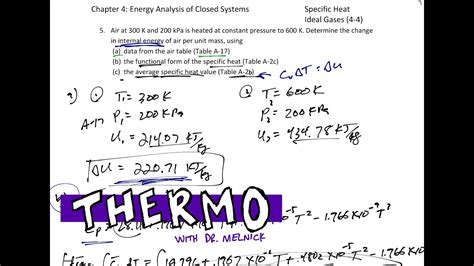 Chapter 4: Energy Analysis of Closed Systems
Specific Heat
Ideal Gases (4-4)
5. Air at 300 K and 200 kPa is heated at constant pressure to 600 K. Determine the change
in internal energy of air per unit mass, using
(a) data from the air table (Table A-17)
(b) the functional form of the specific heat (Table A-2c)
(c) the average specific heat value (Table A-2b)
Cv ΔT = ΔU
a) ① T₁ = 300K
② T₂ = 600K
P₁ = 200 KPa
P₂ = 200 KPa
A-17
U₁ = 214.07 KJ/Kg
U₂ = 434.78 KJ/Kg
ΔU = 220.71 KJ/Kg
THERMO
WITH DR. MELNICK